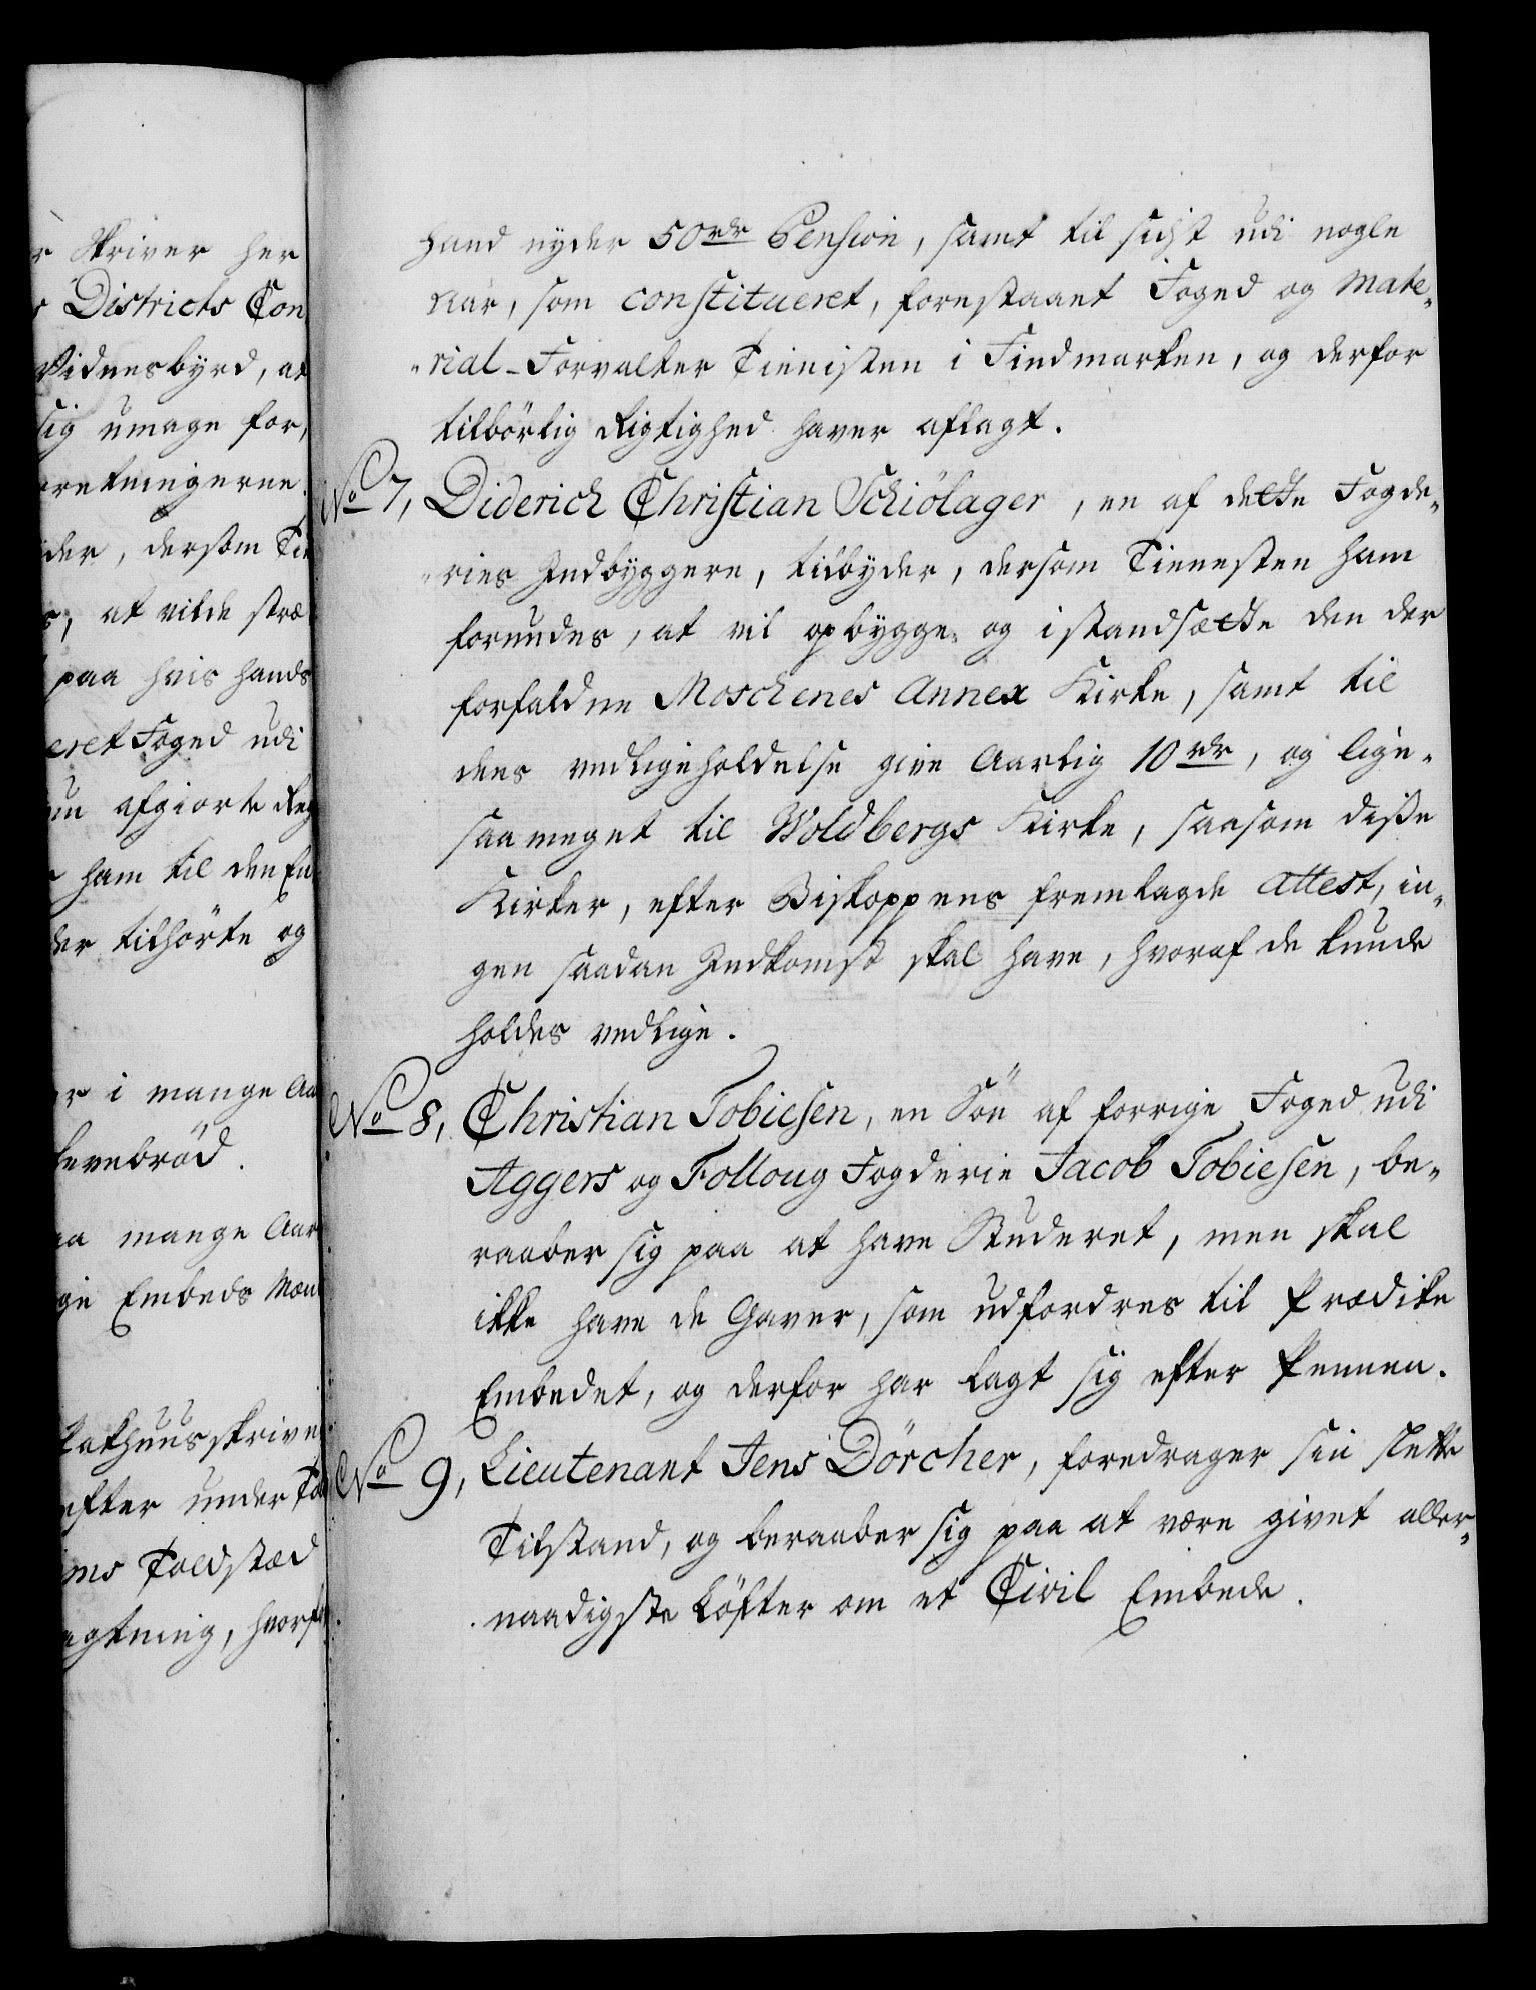 r Skriver her
s Districts Con
Vidnesbyrd, at
sig umage for,
oretningerne
der, dersom Tie
s, at vilde stræ
paa hvis hands
eret Foged udi
un afgiorte Reg
r ham til den En
der tilhörte og
er i mange Aa
levebröd.
aa mange Aar
ge Embeds Mæn
Rathuusskrive
efter under To
ms Toldstæd
agtning, hvorf
hand nyder 50 rdr Pension, samt til sidst udi nogle
Aar, som constitueret, forestaaet Foged og Mate„
„rial-Forvalter Tienisten i Findmarken, og derfor
tilbörlig Rigtighed haver aflagt.
No 7, Diderich Christian Schiölager, en af dette Fogde„
„ries Indbyggere, tilbyder, dersom Tienesten ham
forundes, at vil opbygge og istandsætte den der
forfaldne Moschenes Annex Kirke, samt til
dens vedligeholdelse give Aarlig 10 rdr, og lige„
saameget til Woldbergs Kirke, saasom disse
Kirker, efter Biskoppens fremlagde Attest, in„
gen saadan Indkomst skal have, hvoraf de kunde
holdes vedlige.
No 8, Christian Tobiesen, en Sön af forrige Foged udi
Aggers og Folloug Fogderie Jacob Tobiesen, be„
raaber sig paa at have Studeret, men skal
ikke have de Gaver, som udfordres til Prædike
Embedet, og derfor har lagt sig efter Pennen.
No 9, Lieutenant Jens Dörcher, foredrager sin slette
Tilstand, og beraaber sig paa at være givet aller„
naadigste Löfter om et Civil Embede.